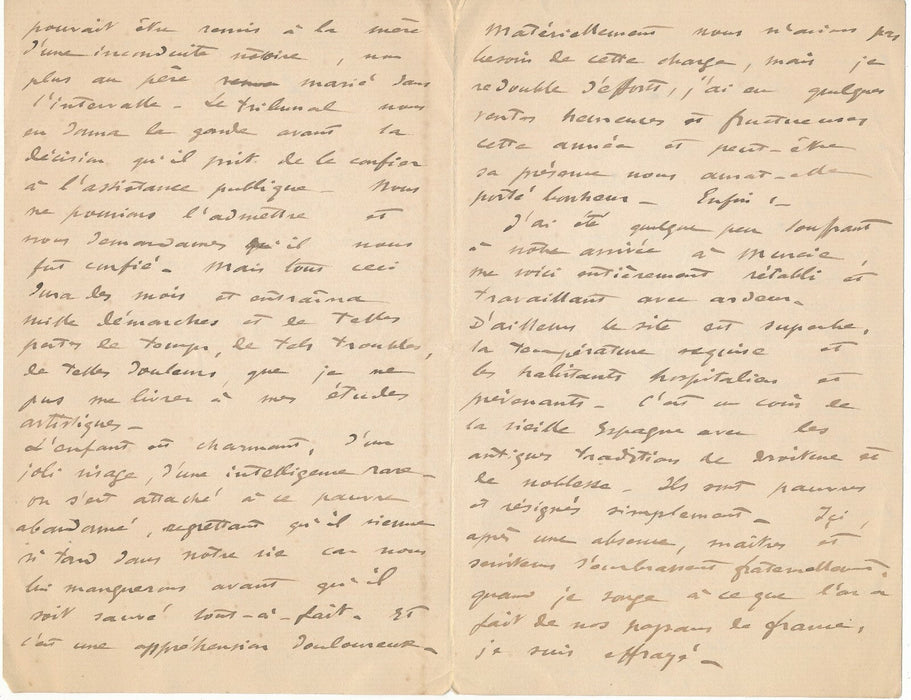 pouvait être remis à la mère
d'une inconduite notoire, non
plus au père marié dans
l'intervalle - Le tribunal nous
en donna la garde avant la
décision qu'il prit de le confier
à l'assistance publique - Nous
ne pouvions l'admettre et
nous demandames qu'il nous
fut confié - Mais tout ceci
dura des mois et entraîna
mille démarches et de telles
pertes de temps, de tels troubles,
de telles douleurs, que je ne
pus me livrer à mes études
artistiques -
L'enfant est charmant, d'un
joli visage, d'une intelligence rare -
on s'est attaché à ce pauvre
abandonné, regrettant qu'il vienne
si tard dans notre vie car nous
lui manquerons avant qu'il
soit sauvé tout-à-fait - Et
c'est une appréhension douloureuse -
Matériellement nous n'avions pas
besoin de cette charge, mais je
redouble d'efforts, j'ai eu quelques
ventes heureuses et fructueuses
cette année et peut-être
sa présence nous aurat-elle
porté bonheur - Enfin ! -
J'ai été quelque peu souffrant
à notre arrivée à Murcie,
me voici entièrement rétabli et
travaillant avec ardeur -
D'ailleurs le site est superbe,
la température exquise et
les habitants hospitaliers et
prévenants - C'est un coin de
la vieille Espagne avec les
antiques traditions de droiture et
de noblesse - Ils sont pauvres
et résignés simplement - Ici,
après une absence, maîtres et
serviteurs s'embrassent fraternellement -
quand je songe à ce que l'on a
fait de nos paysans de france,
je suis effrayé -